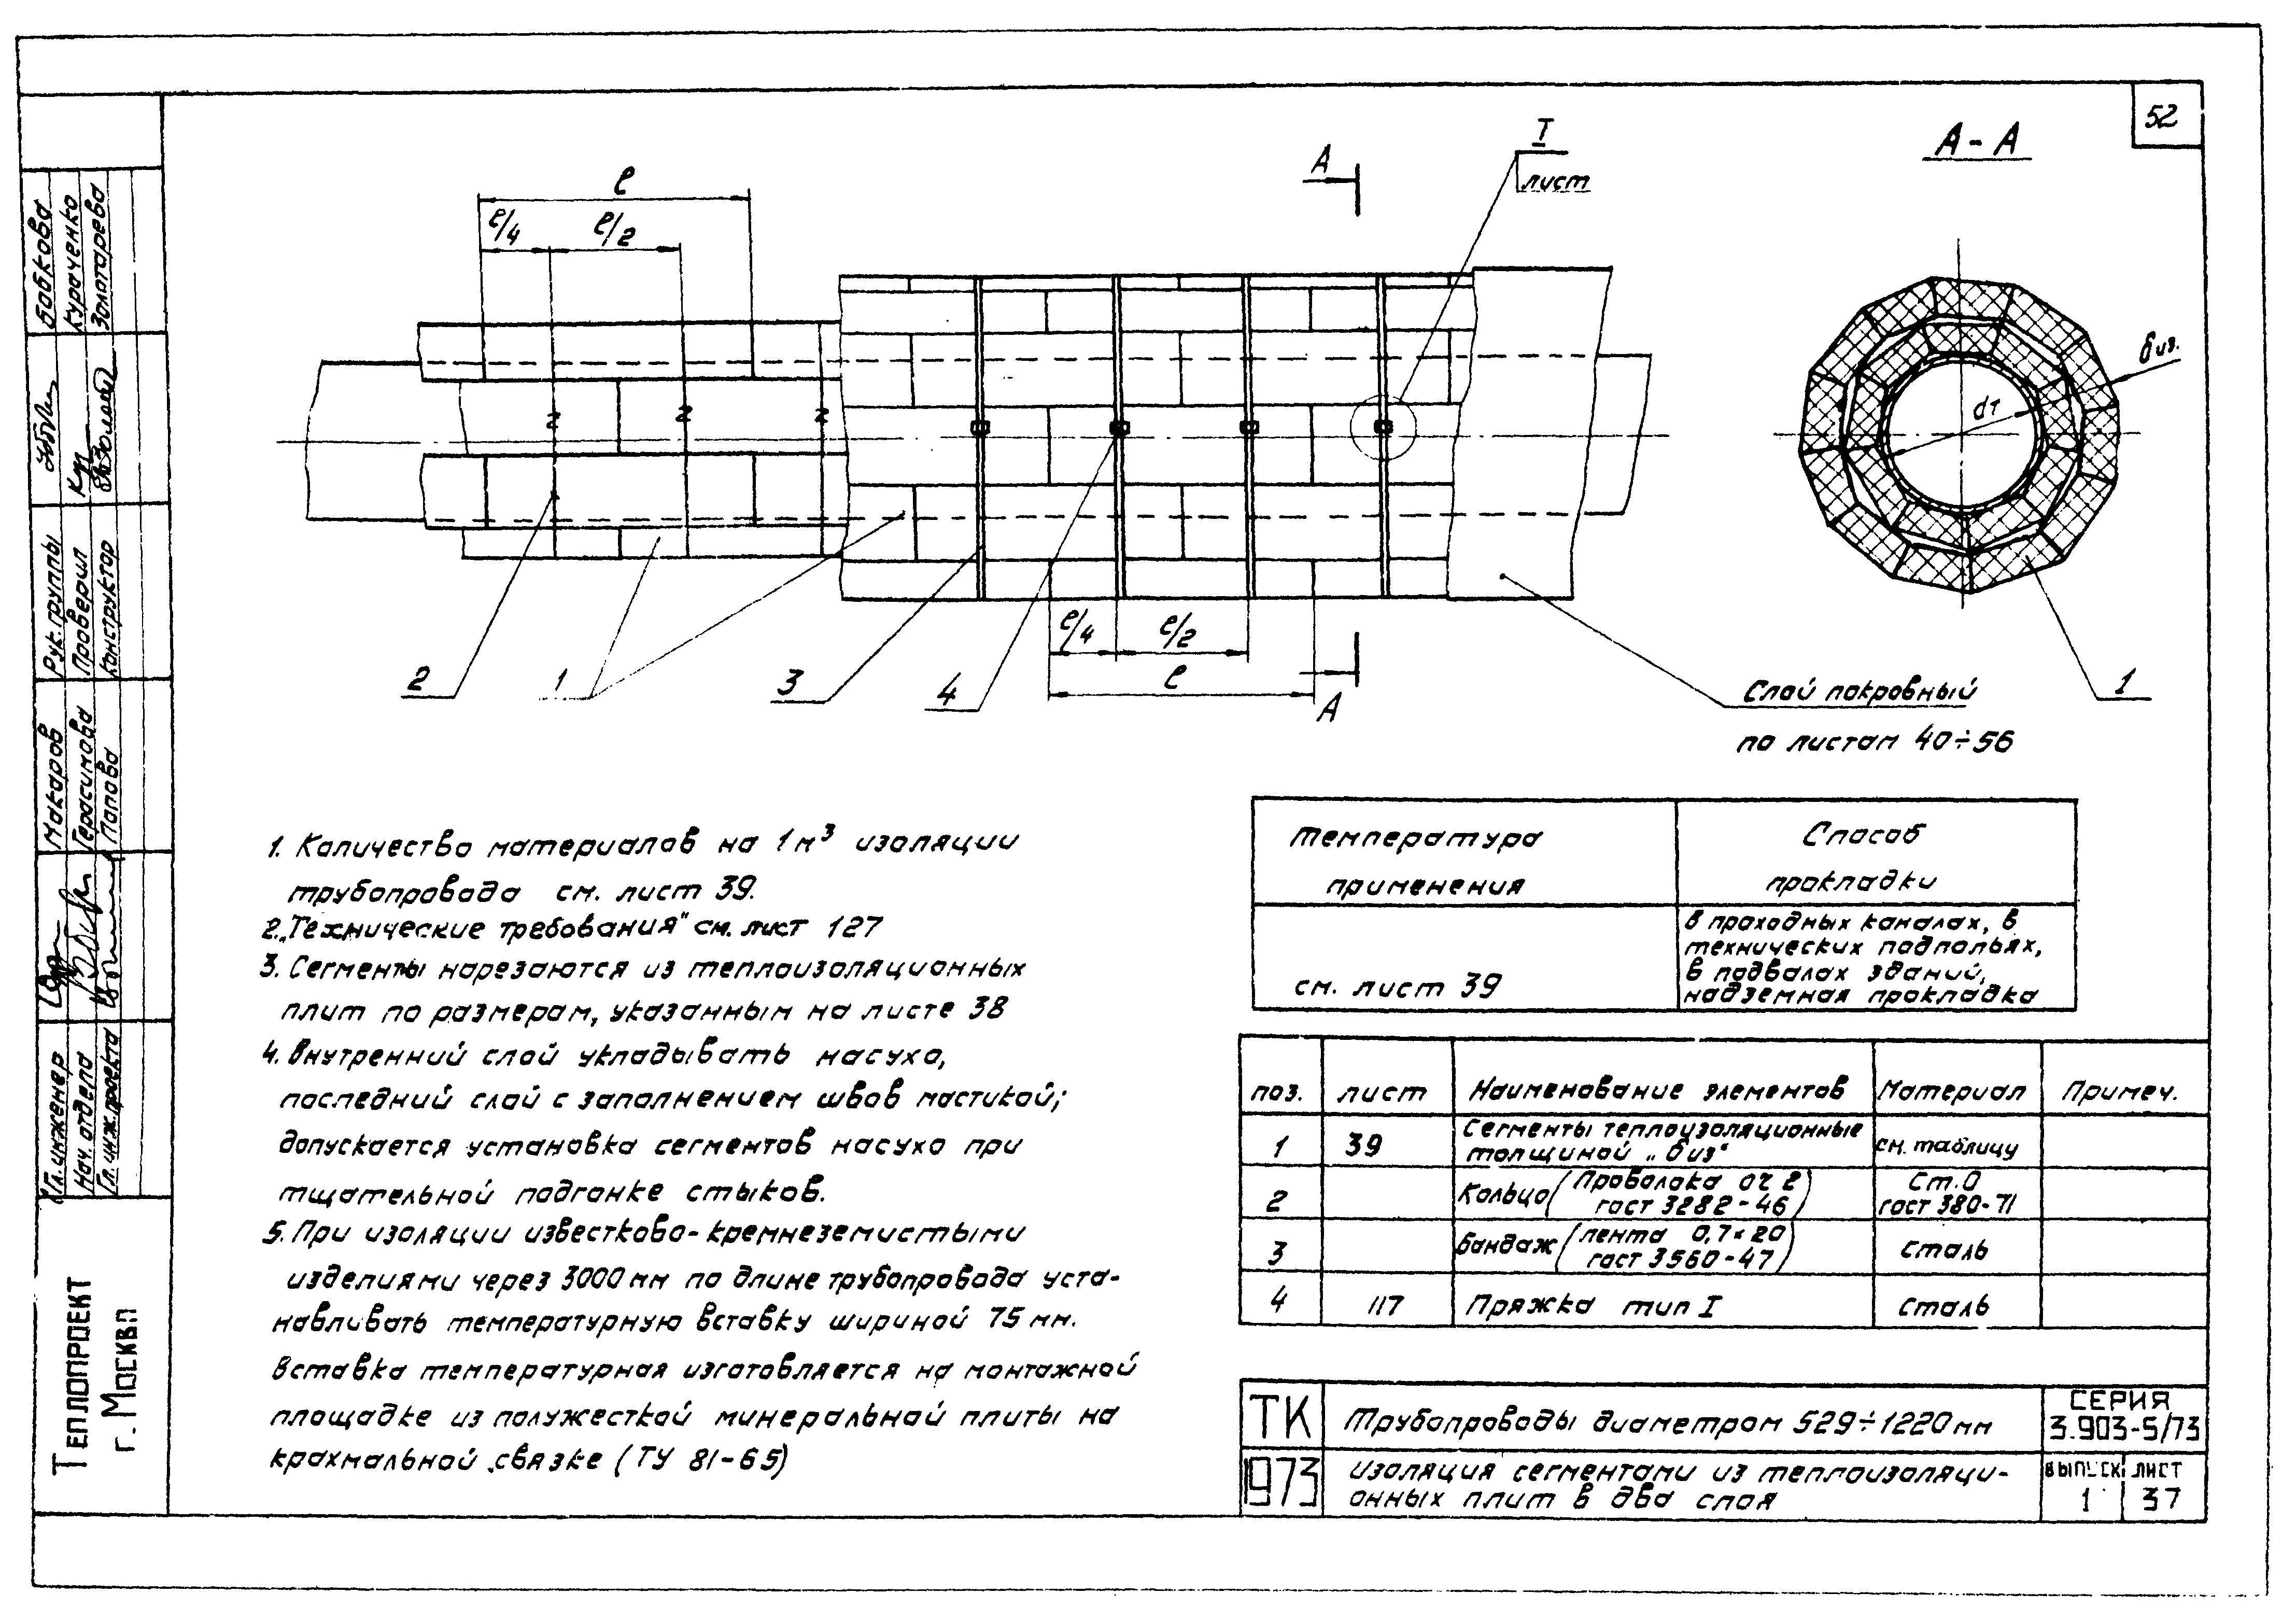 52
А-А
I
лист
А
ℓ
ℓ/4
ℓ/2
2
1
3
4
ℓ/4
ℓ/2
ℓ
А
dт
δиз.
1
Слой покровный
по листам 40÷56
1. Количество материалов на 1м³ изоляции
трубопровода см. лист 39.
2. „Технические требования" см. лист 127
3. Сегменты нарезаются из теплоизоляционных
плит по размерам, указанным на листе 38
4. Внутренний слой укладывать насухо,
последний слой с заполнением швов мастикой;
допускается установка сегментов насухо при
тщательной подгонке стыков.
5. При изоляции известково-кремнеземистыми
изделиями через 3000 мм по длине трубопровода уста-
навливать температурную вставку шириной 75 мм.
Вставка температурная изготовляется на монтажной
площадке из полужесткой минеральной плиты на
крахмальной связке (ТУ 81-65)
Температура
применения
Способ
прокладки
см. лист 39
в проходных каналах, в
технических подпольях,
в подвалах зданий,
надземная прокладка
поз. лист Наименование элементов Материал Примеч.
1 39 Сегменты теплоизоляционные
толщиной „δиз" см. таблицу
2 Кольцо (Проволока ОЧ 2
гост 3282-46) Ст.0
гост 380-71
3 Бандаж (лента 0,7×20
гост 3560-47) сталь
4 117 Пряжка тип I сталь
ТК
1973
Трубопроводы диаметром 529÷1220 мм
Изоляция сегментами из теплоизоляци-
онных плит в два слоя
СЕРИЯ
3.903-5/73
ВЫПУСК ЛИСТ
1 37
Гл. инженер Макаров
Нач. отдела Герасимова
Гл. инж. проекта Попова
Рук. группы Бабкова
Проверил Кураченко
Конструктор Золотарева
ТЕПЛОПРОЕКТ
г. МОСКВА